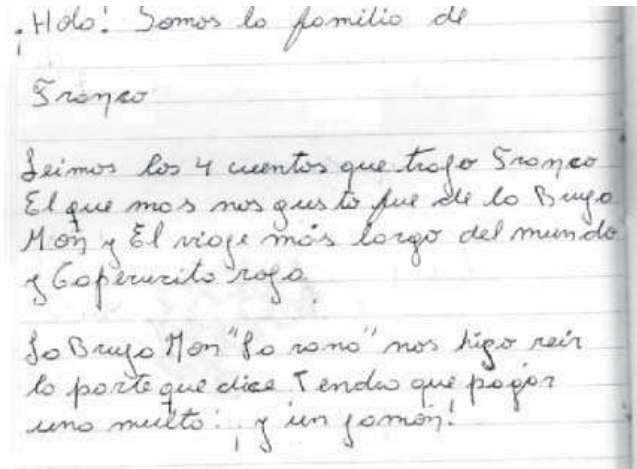 ¡Hola! Somos la familia de
Franco
Leimos los 4 cuentos que trajo Franco
El que mas nos gusto fue de la Bruja
Mon y El viaje más largo del mundo
y Caperucita roja.
La Bruja Mon "La rana" nos hizo reir
la parte que dice Tendra que pagar
una multa: ¡y un jamón!